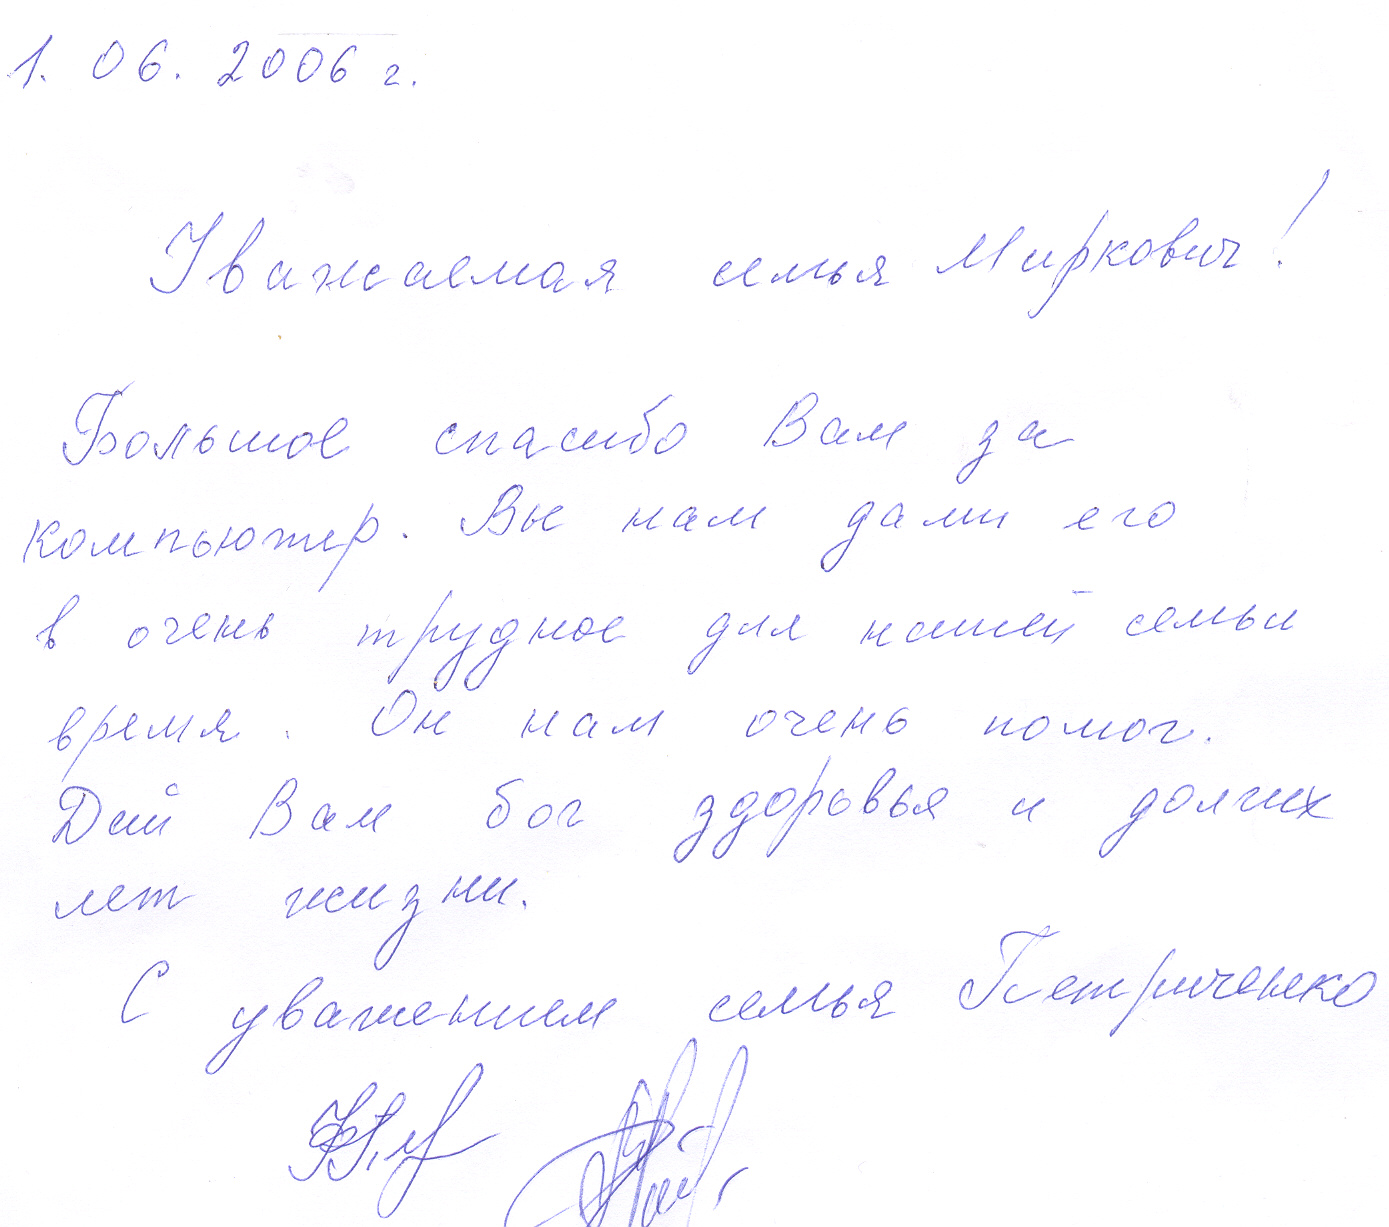 1. 06. 2006 г.
Уважаемая семья Миркович!
Большое спасибо Вам за
компьютер. Вы нам дали его
в очень трудное для нашей семьи
время. Он нам очень помог.
Дай Вам бог здоровья и долгих
лет жизни.
С уважением семья Петриченко